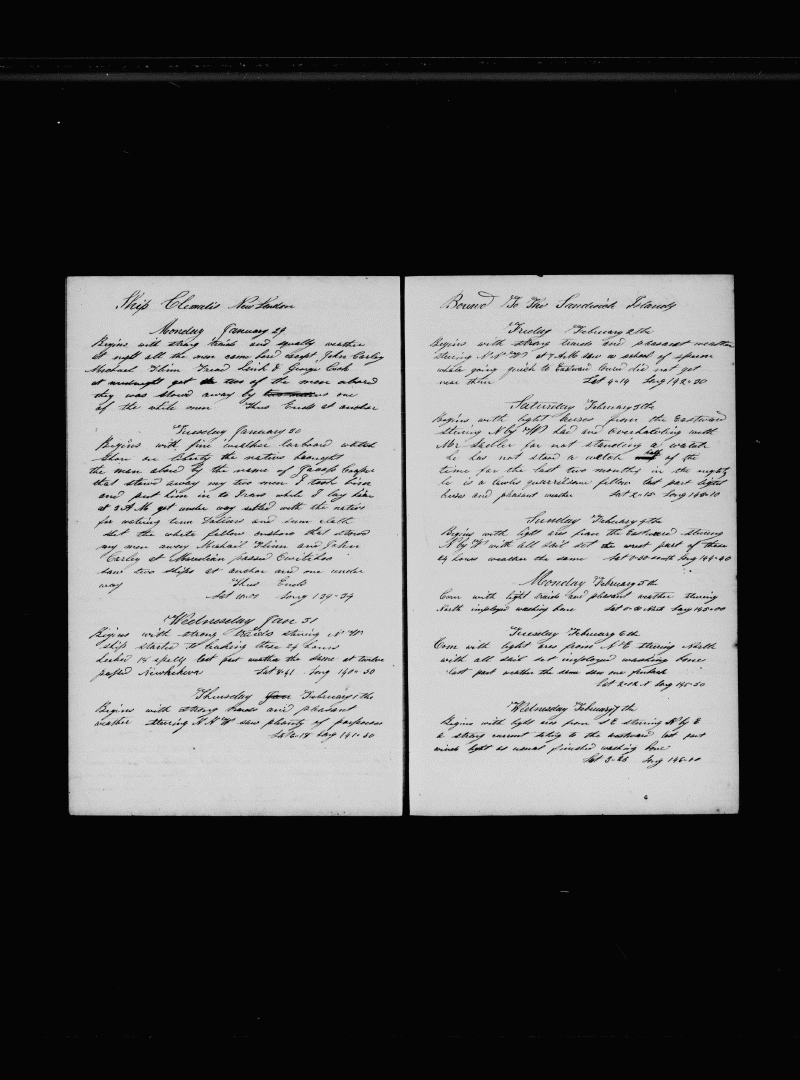 Ship Clematis New London
Monday January 29
Begins with strong traids and squally weather
at night all the men came bord except John Carley
Michael Flinn Leich & George Cook
at midnight got two of the men abord
they was stowed away by one
of the white men Thus Ends at anchor
Tuesday January 30
Begins with fine weather larboard watch
shore on liberty the natives brought
the man abord by the name of Cooper
that stowed away my two men I took him
and put him in to Irons while I lay here
at 2 A M got under way settled with the natives
for
set the white fellow onshore that stowed
my men away Michael Flinn and John
Carley at Meridian passed
saw two ships at anchor and one under
way Thus Ends
Lat 10-07 Long 139-39
Wednesday Jan 31
Begins with strong traids stering N W
ship started to leaking these 24 hours
last part weather the same at twelve
passed Newhekeva Lat 8-41 Long 140-50
Thursday Jan February 1 the
Begins with strong traids and pleasant
weather stering N N W saw plenty of porpoises
Lat 6-18 Long 141-50
Bound To The Sandwich Islands
Friday February 2 th
Begins with strong traids and pleasant weather
stering N N W at 7 AM saw a school of sperm
whale going quick to Eastward lowed did not get
near them Lat 4-14 Long 142-30
Saturday February 3 th
Begins with light breses from the Eastward
stering N by W had an overhauling with
Mr for not standing a watch
he has not stood a watch half of the
time for the last two months in the night
he is a quarrilsome fellow last part light
breses and plesant weather Lat 2-15 Long 143-10
Sunday February 4 th
Begins with light ares from the Eastward stering
N by W with all sail set the wrest part of these
24 hours weather the same Lat 0-50 south Long 144-40
Monday February 5 th
Com with light traids and plesant weather stering
North imployed washing bone Lat 0-00 North Long 145-00
Tuesday February 6 th
Com with light ares from N E stering North
with all sail set imployed washing bone
last part weather the same saw one finback
Lat Long 145-50
Wednesday February 7 th
Begins with light ares from S E stering N by E
a strong current seting to the eastward last part
winds light as usual finished washing bone
Lat 3-26 Long 146-00